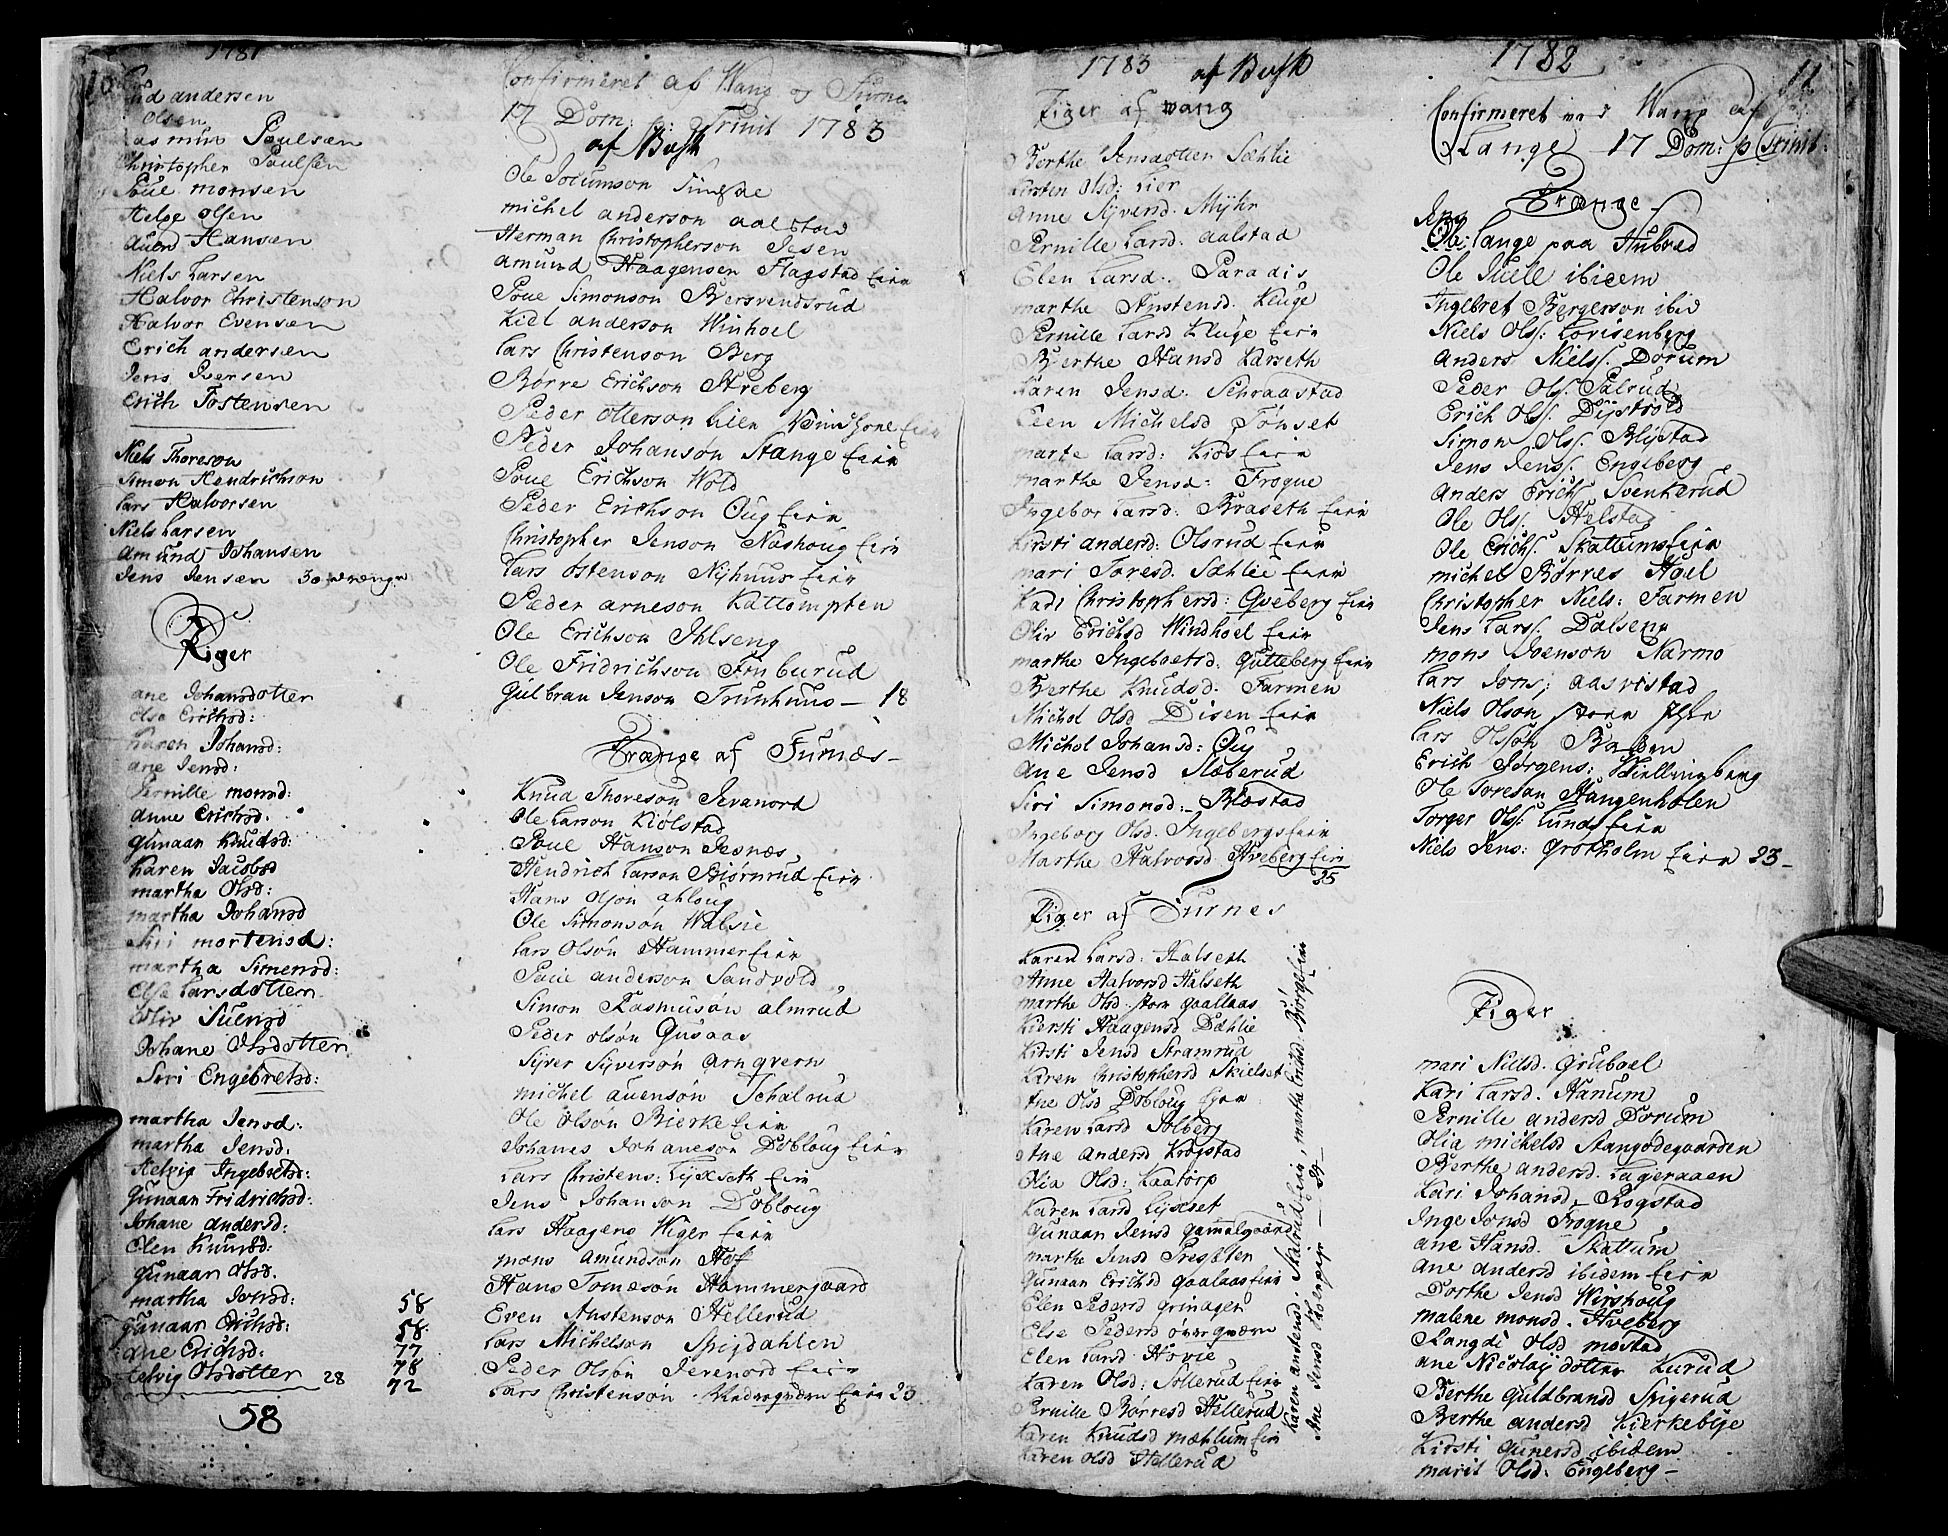 1781
andersen
Olsen
Poulsen
Christopher Poulsen
Poul monsen
Helge olsen
Hansen
Niels Larsen
Halvor Christenson
Halvor Evensen
Erich andersen
Jens Iversen
Erich Tostensen
Niels Thoreson
Simon Hendrichson
Lars Halvorsen
Niels Larsen
Amund Johansen
Jens Jensen 30
Piger
ane Johansdotter
Else Erichsd:
Karen Johansd:
ane Jensd:
Pernille monsd:
anne Erichsd:
gunaar Knudsd:
Karen Jacobsd
martha Olsd:
martha Johansd
Siri mortensd:
martha Simensd:
Else Larsdotter
Oliv
Johane Olsdotter
Siri Engebretsd:
martha Jensd:
martha Jensd.
Helvig Ingebretsd:
Gunaar Fridrichsd:
Johane andersd:
Olen Knudsd:
gunaar Olsd.
martha Jonsd: 58
gunaar Erichsd: 58
ane Erichsd: 77
Helvig Olsdotter 28 78
72
58
Confirmeret af Wang og Furnes
17 Dom: p: Trinit 1783
af Bush
Ole
michel anderson aalstad
Herman Christopherson Jesen
amund Haagensen Flagstad Eier
Poul Simonson Bersvendsrud
Kiel anderson Winhoel
Lars Christenson Berg
Børre Erichson Hveberg
Peder otterson Lien
Peder Johansøn Stange Eier
Poul Erichson Wold
Peder Erichson Oug Eier
Christopher Jenson Nashoug Eier
Lars Ostenson Nyhuus Eier
Peder arneson Kattompten
Ole Erichson Ihlseng
Ole Fridrichson Finburud
Gulbran Jenson Trunhuus — 18
Drænge af Furnæs —
Knud Thoreson Jevanord
Ole Larson Kiølstad
Poul Hanson Jesnæs
Hendrich Larson Biørnrud Eier
Hans
Ole Simonsøn Walsie
Lars Olsøn Hammer Eier
Poul anderson Sandvold
Simon Rasmusøn almrud
Peder olsøn Gusaas
Syver Syversøn arnqvern
michel auensøn Schalrud
Ole olsøn Bierke Eier
Johanes Johaneson Dobloug Eier
Lars Christens: Lyseth Eier
Jens Johanson Dobloug
Lars Haagens Wiger Eier
mons amundsøn Hof
Hans Tomesøn Hammergaard
Even Austenson Hellerud
Lars Michelson Spigdahlen
Peder Olsøn Jevenord Eier
Lars Christensøn Eier 23
1783 af Bush
Piger af wang
Berthe Jensdotter Sæhlie
Kirsten Olsd: Lier
Anne Syversd. Myhr
Pernille Larsd: aalstad
Elen Larsd. Paradis
marthe Austensd. Kluge
Pernille Larsd Kluge Eier
Berthe Hansd Karseth
Karen Jensd: Schraastad
Elen Michelsd Tønset
marte Larsd: Kiøs Eier
marthe Jensd: Frogue
Ingebor Larsd: Braseth Eier
Kirsti andersd: Olsrud Eier
mari Toresd. Sæhlie Eier
Kadi Christophersd: Qveberg Eier
Oliv Erichsd Windhoel Eier
marthe Ingebretsd: Gutteberg Eier
Berthe Knudsd: Farmen
Michol Olsd Disen Eier
Michol Johansd: Oug
Ane Jensd Slæberud
Siri Simonsd: Blæstad
Ingeborg Olsd. Ingebergs Eier
Marthe Halvorsd Hveberg Eier
25
Piger af Furnes
Karen Larsd: Halseth
Anne Halvorsd Halseth
marthe Olsd: stor gaallaas
Kiersti Haagensd Dæhlie
Kirsti Jensd Stramrud
Karen Christophersd Skielset
Ane Olsd Dobloug Eier
Karen Larsd Solberg
Ane Andersd Krogstad
Olia Olsd: Kaatorp
Karen Larsd Lyseset
Gunaar Jensd gammelgaard
marthe Jensd Præsteter
Gunaar Erichsd gaalaas Eier
Elen Pedersd grinager
Else Pedersd øvergværn
Elen Larsd Hovie
Karen Olsd: Sollerud Eier
Pernille Børresd Hellerud
Karen Knudsd mæhlum Eier
Karen Olsd Hellerud
Karen austensd. Skalrud Eier, marthe Erichsd: Biørge Eier
Ane Jensd
1782
11
Confirmeret va i Wang af
Stange — 17 Dom: p Trinit:
Drænge —
Jens
Ole Lange paa Hubred
Ole Juell ibidem
Ingebret Bergerson ibid
Niels Olss: Lovisenberg
Anders Nielss: Dørum
Peder Olss. Palrud
Erich Olss. Dystvold
Simon Olss. Blystad
Jens Jenss. Engeberg
Anders Erichs Svenkerud
Ole Olss. Helstad
Ole Erichs. Skattums Eier
michel Børres Hoel
Christopher Niels: Farmen
Jens Larss. Dalseng
mons Svenson Narmo
Lars Jons: aasvistad
Niels Olson
Lars Olssøn Bakken
Erich Jørgens: Kiellingberg
Ole Toresøn Haugenholen
Torger Olss: Lunds Eier
Niels Jens: Grotholm Eier 23 —
Piger
mari Nielsd. Gruboel
Kari Larsd. Hanum
Pernille andersd Dorum
Olia michelsd Stangodegaarden
Berthe andersd. Lageraaen
Kari Johansd. Rogstad
Inge Jonsd Frogue
ane Hansd. Skatum
ane andersd ibidem Eier
Dorthe Jensd Wirshoug
malene monsd. Hveberg
Rangdi Olsd møstad
ane Nicolay dotter Kurud
Berthe Guldbransd Spigerud
Berthe andersd Kierkebye
Kirsti Gunersd ibidem
marit Olsd: Engeberg —